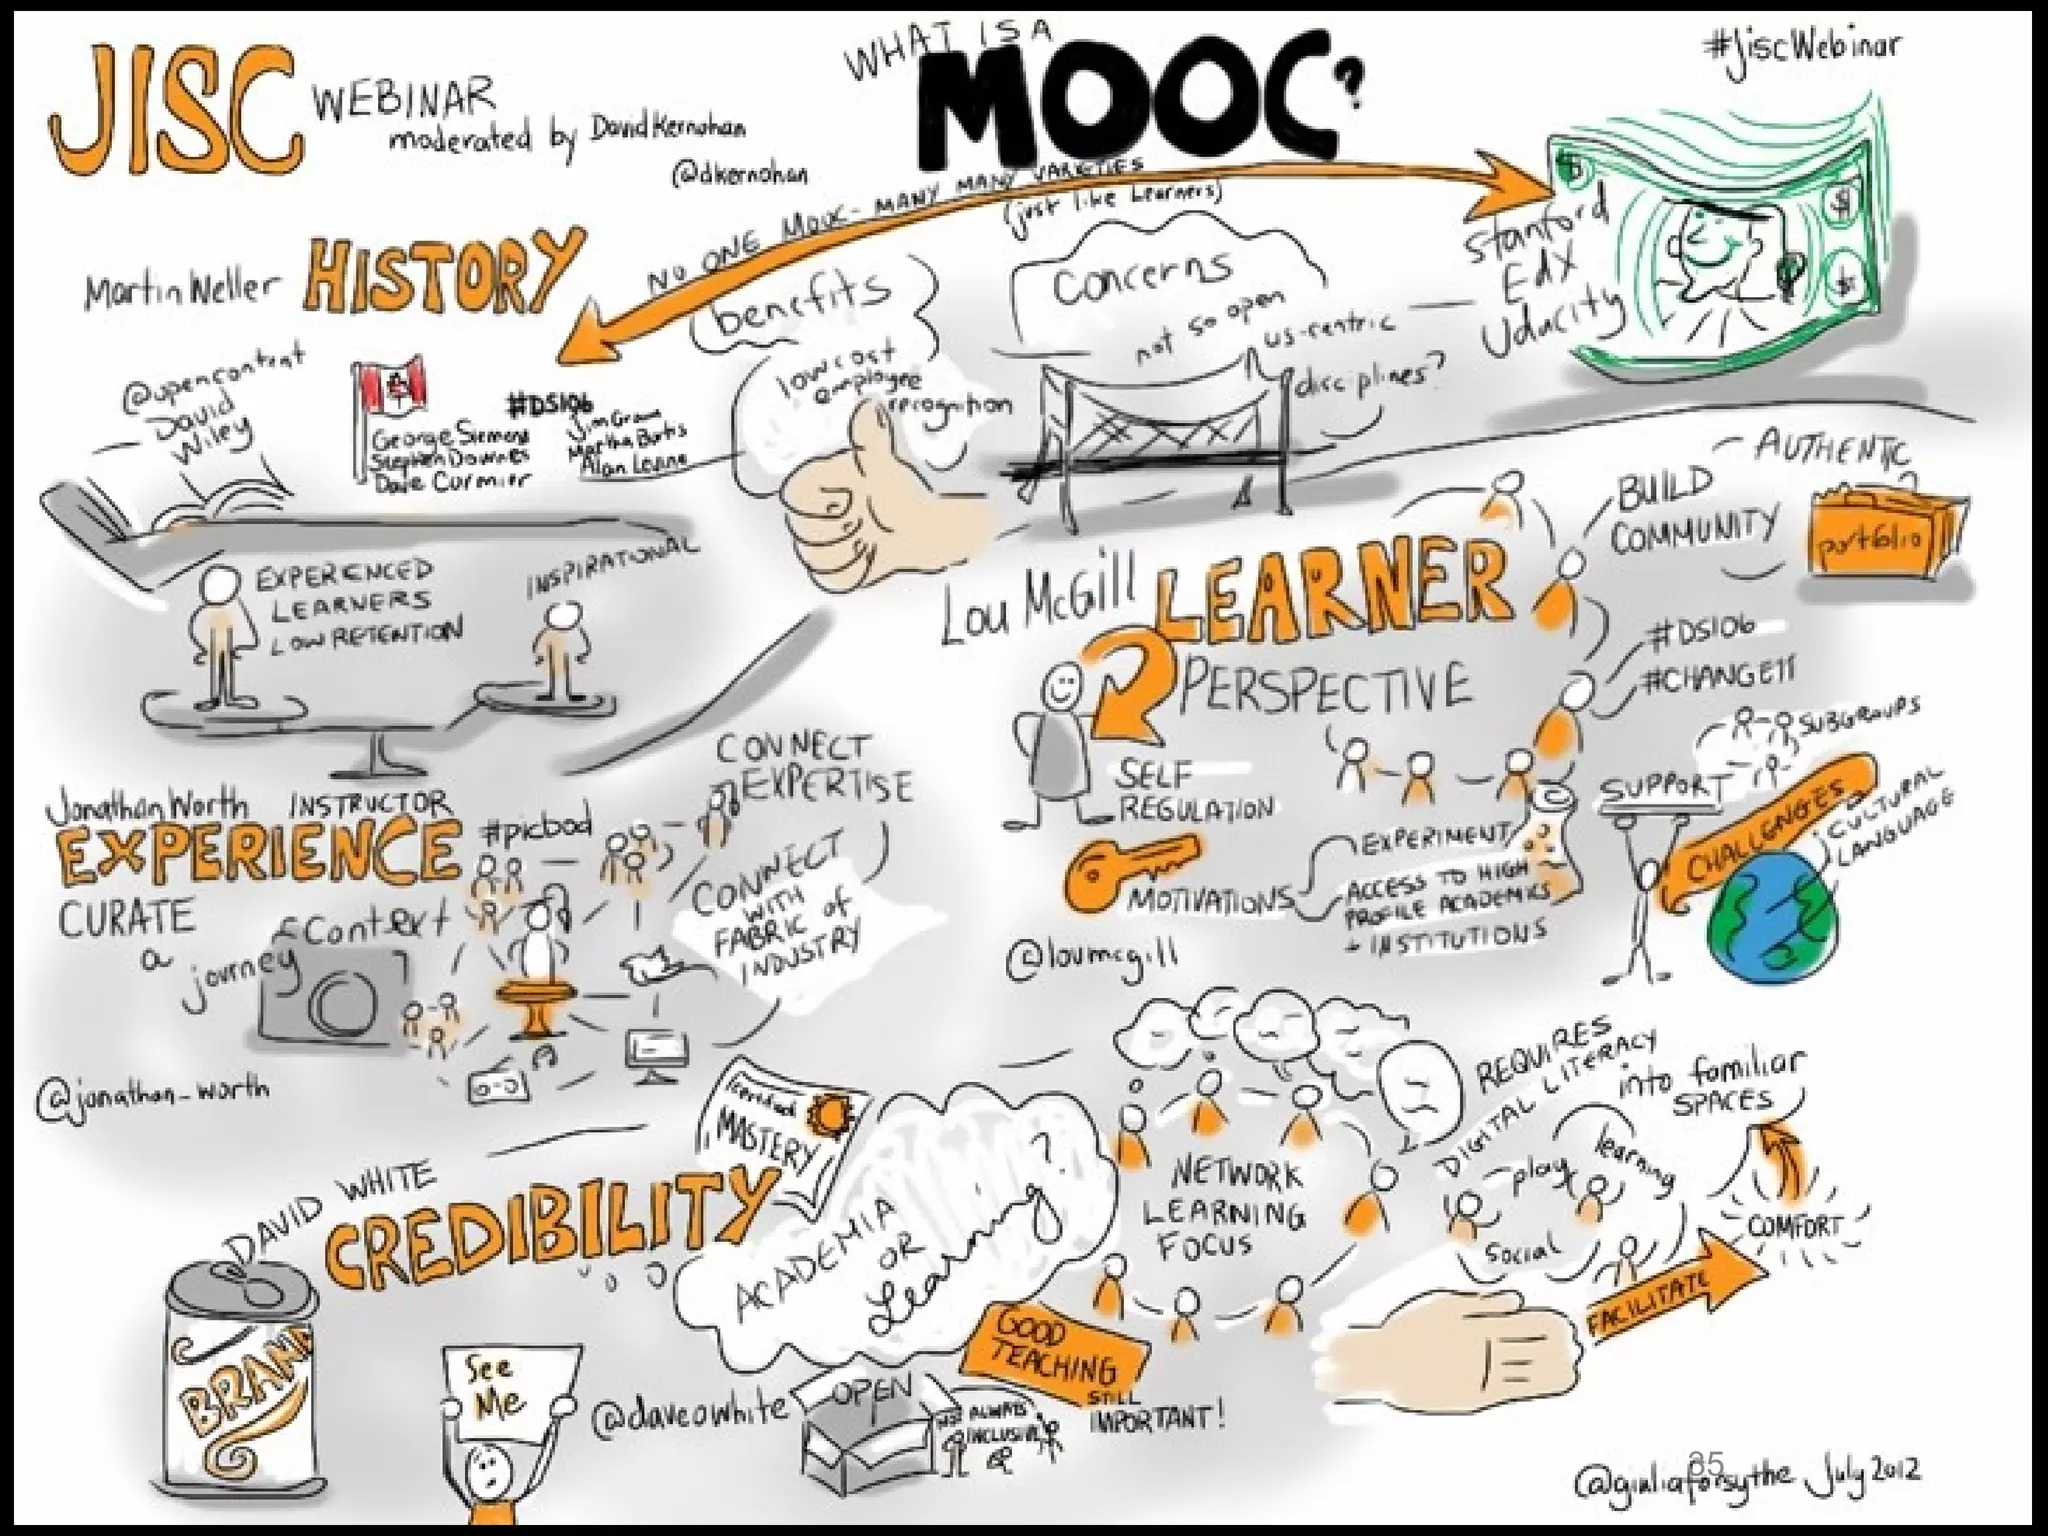 JISC WEBINAR
moderated by David Kernohan
(@dkernohan
WHAT IS A
MOOC?
#JiscWebinar
NO ONE MOOC - MANY MANY VARIETIES
(just like Learners)
Stanford
EdX
Udacity
Martin Weller HISTORY
@opencontent
David
Wiley
George Siemens
Stephen Downes
Dave Cormier
#DS106
Jim Groom
Alan Levine
benefits
low cost
employee
recognition
concerns
not so open
us-centric
disciplines?
EXPERIENCED
LEARNERS
LOW RETENTION
INSPIRATIONAL
Lou McGill LEARNER
PERSPECTIVE
BUILD
COMMUNITY
- AUTHENTIC
portfolio
#DS106
#CHANGE11
SUBGROUPS
SUPPORT
CHALLENGES
CULTURAL
LANGUAGE
SELF
REGULATION
MOTIVATIONS
EXPERIMENT
ACCESS TO HIGH
PROFILE ACADEMICS
+ INSTITUTIONS
@loumcgill
Jonathan Worth INSTRUCTOR
EXPERIENCE #picbod
CURATE
a
journey
Context
CONNECT
EXPERTISE
CONNECT
WITH
FABRIC of
INDUSTRY
@jonathan_worth
DAVID WHITE
CREDIBILITY
MASTERY
ACADEMIA
OR
Learning?
BRAND
See
Me
@daveowhite
OPEN
NOT ALWAYS
INCLUSIVE
GOOD
TEACHING
STILL
IMPORTANT!
NETWORK
LEARNING
FOCUS
REQUIRES
DIGITAL LITERACY
into familiar
SPACES
play
learning
Social
COMFORT
FACILITATE
35
@giuliaforsythe July 2012